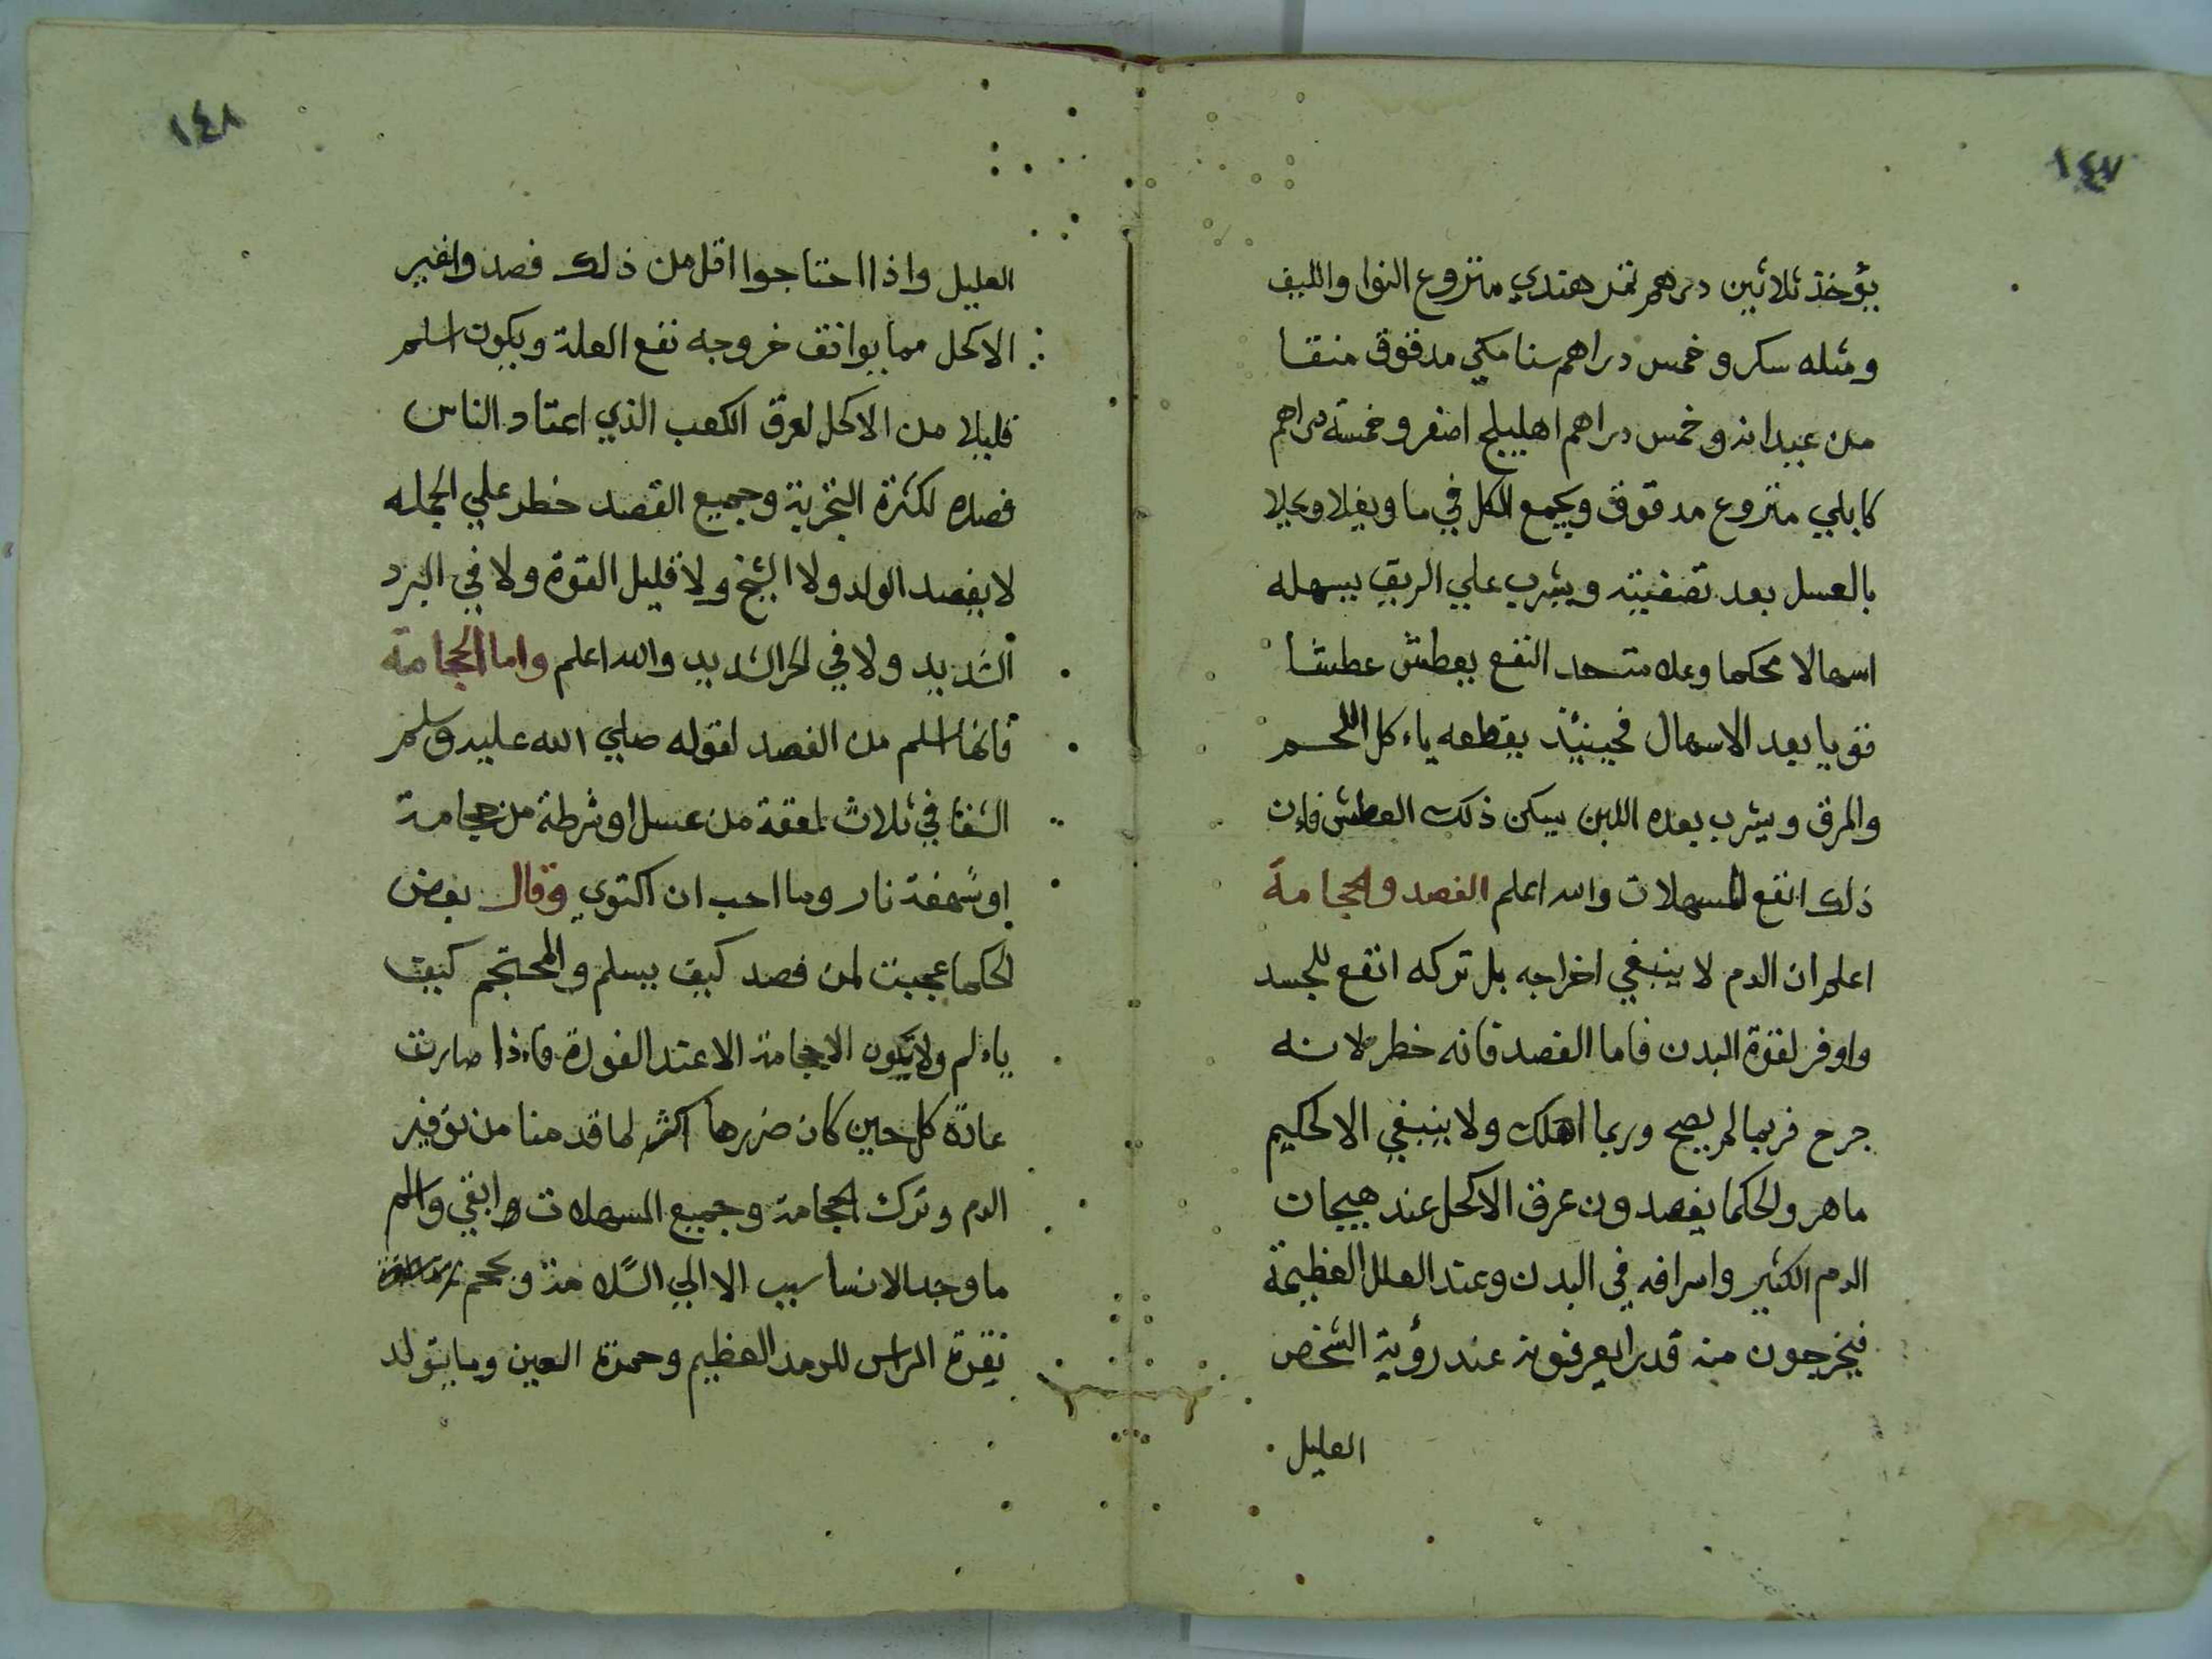 ١٤٧
يؤخذ ثلاثين درهم تمر هندي منزوع النوا والليف
ومثله سكر وخمس دراهم سنا مكي مدقوق منقا
من عيدانه وخمس دراهم اهليلج اصفر وخمسة دراهم
كابلي منزوع مدقوق ويجمع الكل في ما ويغلا ويحلا
بالعسل بعد تصفيته ويشرب علي الريق يسهله
اسهالا محكما النفع يعطش عطشا
قويا بعد الاسهال فحينيذ يقطعه ياءكل اللحم
والمرق ويشرب بعده اللبن يسكن ذلك العطش فان
ذلك انفع المسهلات والله اعلم الفصد والحجامة
اعلم ان الدم لا ينبغي اخراجه بل تركه انفع للجسد
واوفر لقوة البدن فاما الفصد فانه خطر لانه
جرح فربما لم يصح وربما اهلك ولا ينبغي الا لحكيم
ماهر والحكما يفصدون عرق الاكحل عند هيجان
الدم الكثير واسرافه في البدن وعند العلل العظيمة
فيخرجون منه قدرا يعرفونه عند رؤية الشخص
العليل
١٤٨
العليل واذا احتاجوا اقل من ذلك فصدوا غير
الاكحل مما يوافق خروجه نفع العلة ويكون اسلم
قليلا من الاكحل لعرق الكعب الذي اعتاد الناس
فصده لكثرة التجربة وجميع الفصد خطر علي الجمله
لا يفصد الولد ولا الشيخ ولا قليل القوة ولا في البرد
الشديد ولا في الحر الشديد والله اعلم واما الحجامة
فانها اسلم من الفصد لقوله صلي الله عليه وسلم
الشفا في ثلاث لعقة من عسل او شرطة من حجامة
او شهفة نار وما احب ان اكتوي وقال بعض
الحكما عجبت لمن فصد كيف يسلم والمحتجم كيف
ياءلم ولا تكون الحجامة الا عند الفورة فاءذا صارت
عادة كل حين كان ضررها اكثر لما قدمنا من توفير
الدم وترك الحجامة وجميع المسهلات وابقي والم
ما وجد الانسا سبب الا الي السلامة ويحجم
نقرة الراس للرمد العظيم وحمرة العين وما يتولد